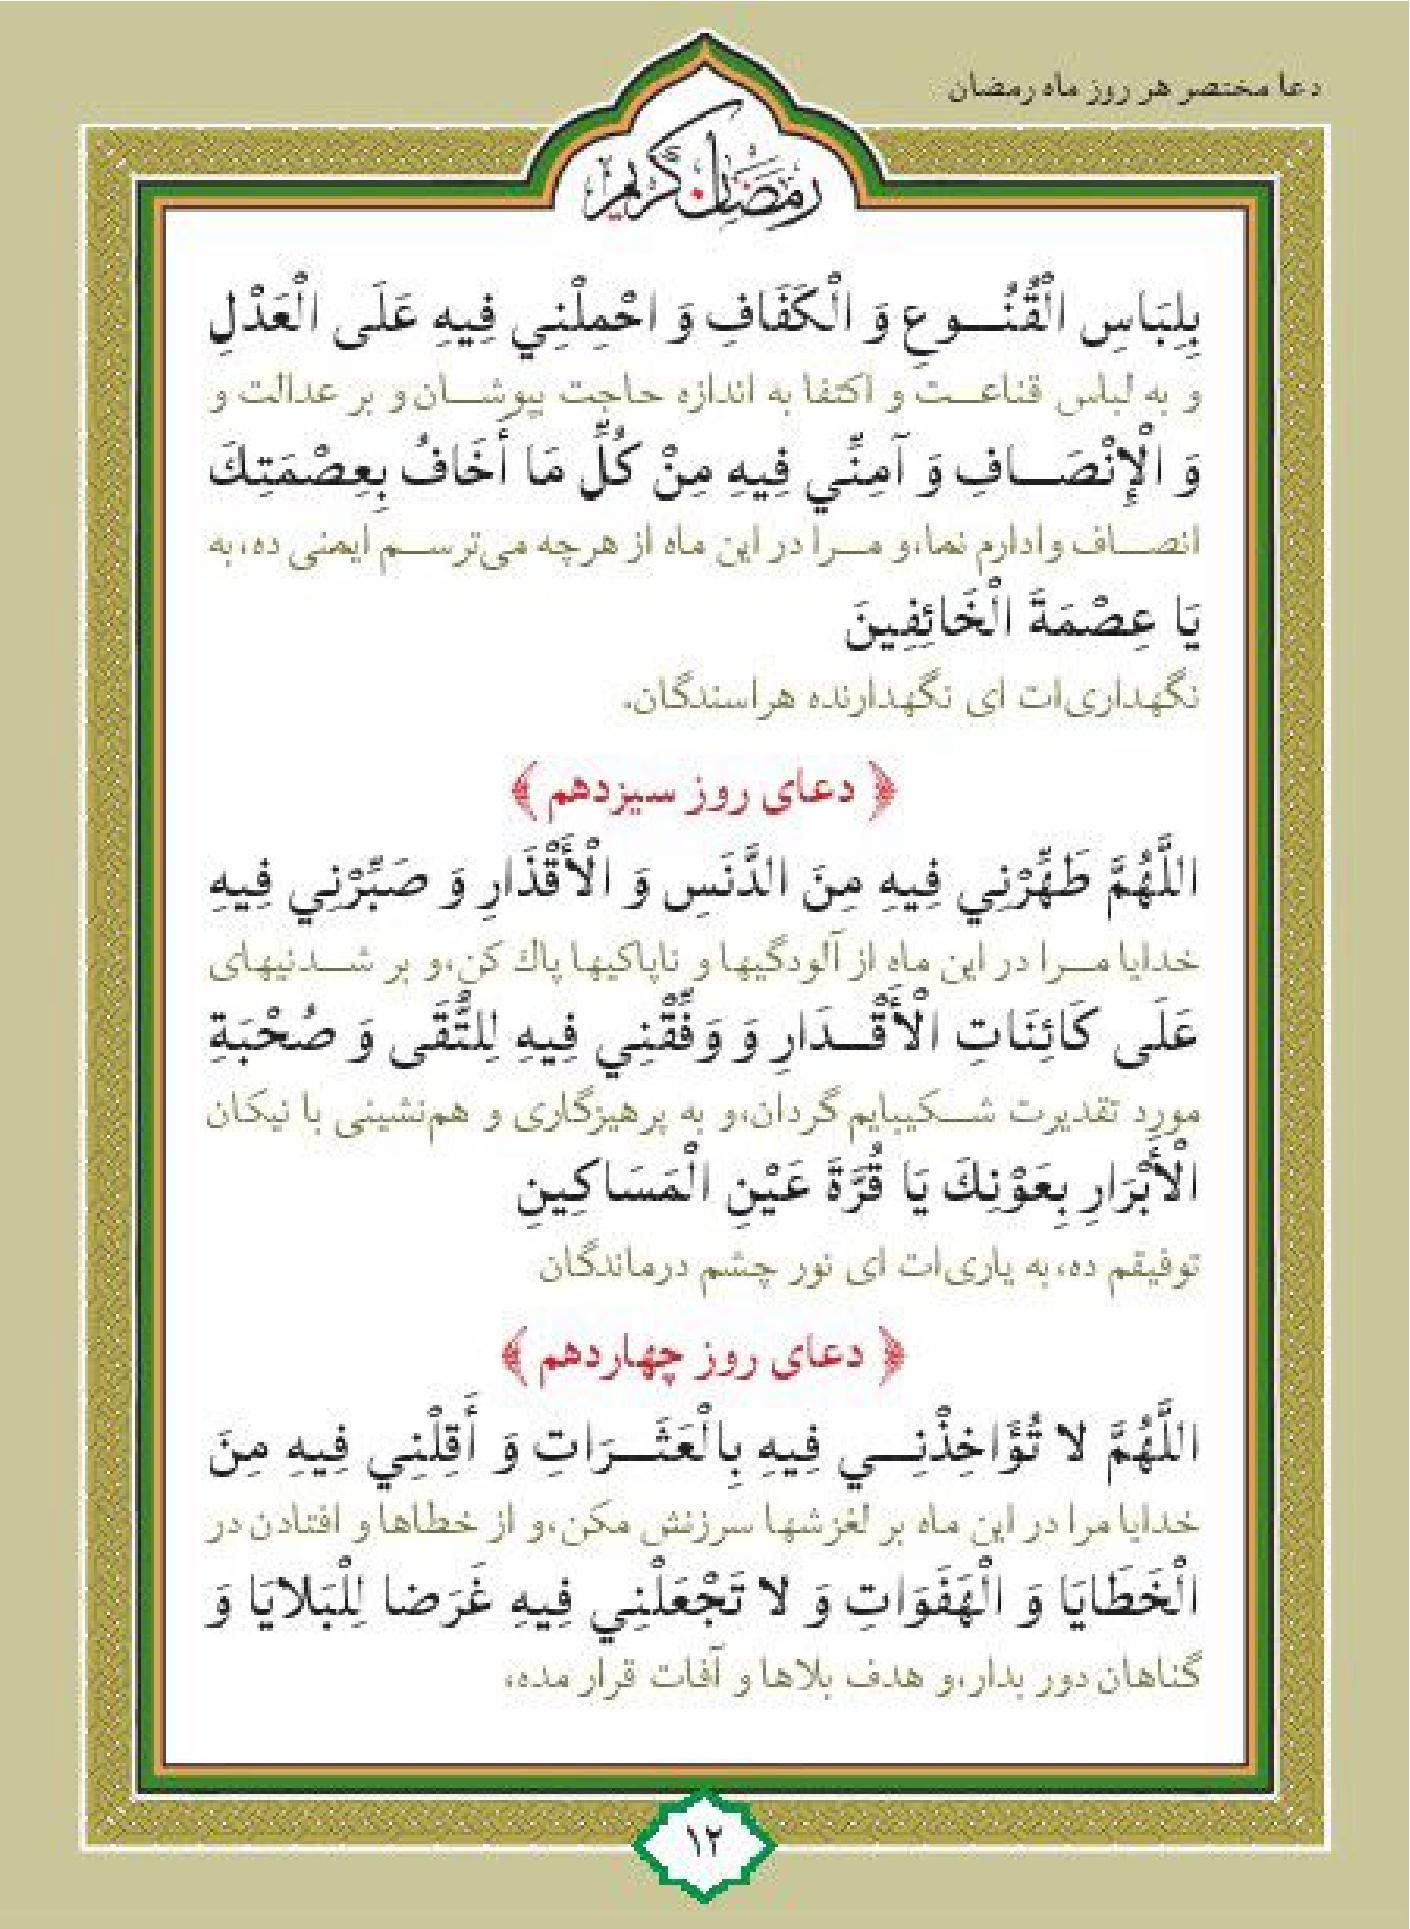 دعا مختصر هر روز ماه رمضان
رمضان کریم
بِلِبَاسِ الْقُنُـــوعِ وَ الْكَفَافِ وَ احْمِلْنِي فِيهِ عَلَى الْعَدْلِ
و به لباس قناعـــت و اکتفا به اندازه حاجت بپوشـــان و بر عدالت و
وَ الْإِنْصَـــافِ وَ آمِنِّي فِيهِ مِنْ كُلِّ مَا أَخَافُ بِعِصْمَتِكَ
انصـــاف وادارم نما، و مـــرا در این ماه از هرچه می‌ترســـم ایمنی ده، به
يَا عِصْمَةَ الْخَائِفِينَ
نگهداری‌ات ای نگهدارنده هراسندگان.
﴿ دعای روز سیزدهم ﴾
اللَّهُمَّ طَهِّرْنِي فِيهِ مِنَ الدَّنَسِ وَ الْأَقْذَارِ وَ صَبِّرْنِي فِيهِ
خدایا مـــرا در این ماه از آلودگیها و ناپاکیها پاك کن، و بر شـــدنیهای
عَلَى كَائِنَاتِ الْأَقْـــدَارِ وَ وَفِّقْنِي فِيهِ لِلتُّقَى وَ صُحْبَةِ
مورد تقدیرت شـــکیبایم گردان، و به پرهیزگاری و هم‌نشینی با نیکان
الْأَبْرَارِ بِعَوْنِكَ يَا قُرَّةَ عَيْنِ الْمَسَاكِينِ
توفیقم ده، به یاری‌ات ای نور چشم درماندگان
﴿ دعای روز چهاردهم ﴾
اللَّهُمَّ لا تُؤَاخِذْنِـــي فِيهِ بِالْعَثَـــرَاتِ وَ أَقِلْنِي فِيهِ مِنَ
خدایا مرا در این ماه بر لغزشها سرزنش مکن، و از خطاها و افتادن در
الْخَطَايَا وَ الْهَفَوَاتِ وَ لا تَجْعَلْنِي فِيهِ غَرَضا لِلْبَلايَا وَ
گناهان دور بدار، و هدف بلاها و آفات قرار مده،
۱۲